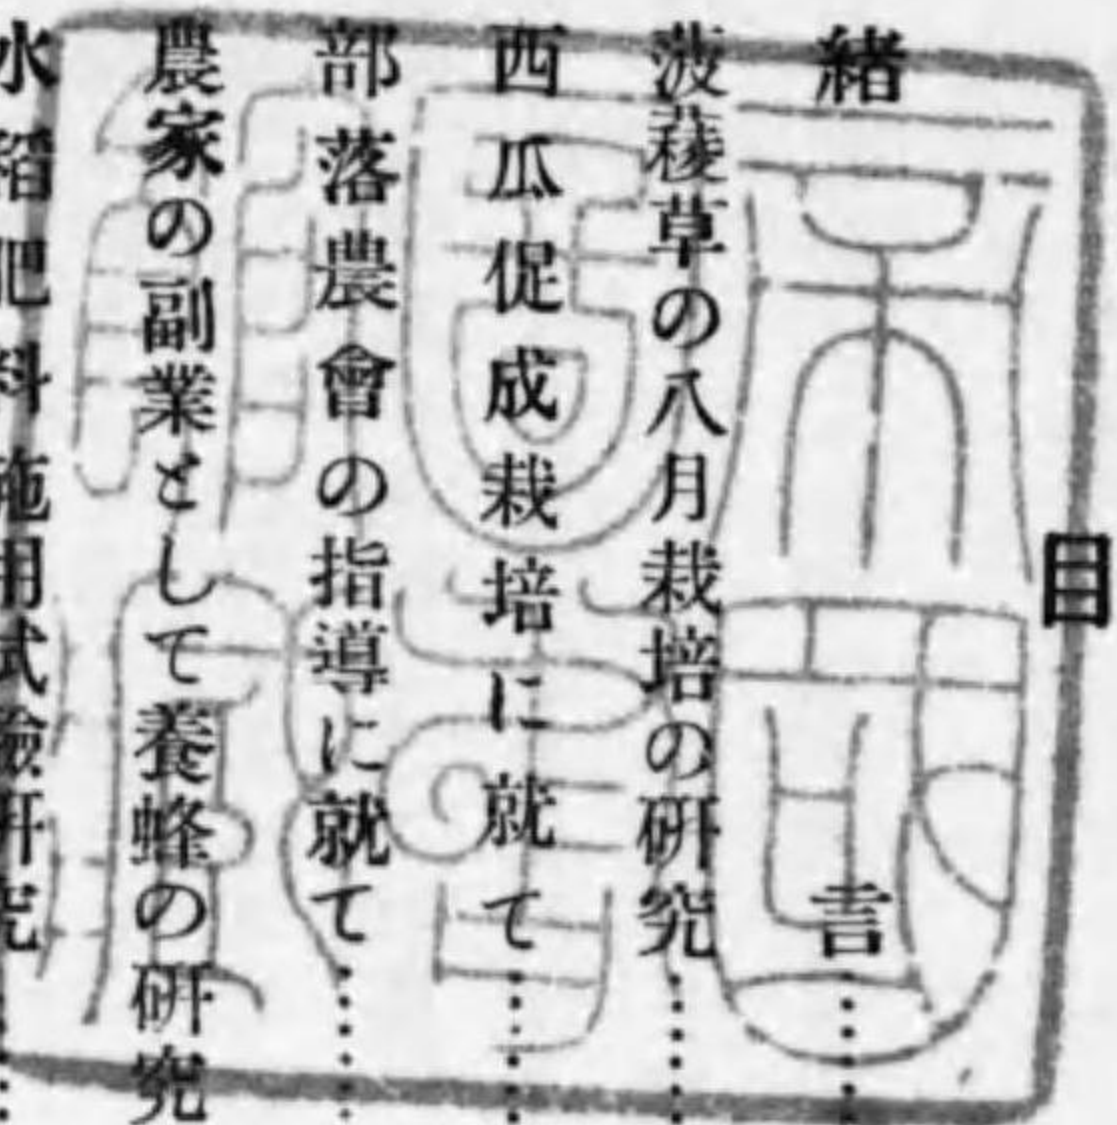 目
緒言
菠薐草の八月栽培の研究
西瓜促成栽培に就て
部落農會の指導に就て
農家の副業として養蜂の研究
水稻肥料施用試驗研究